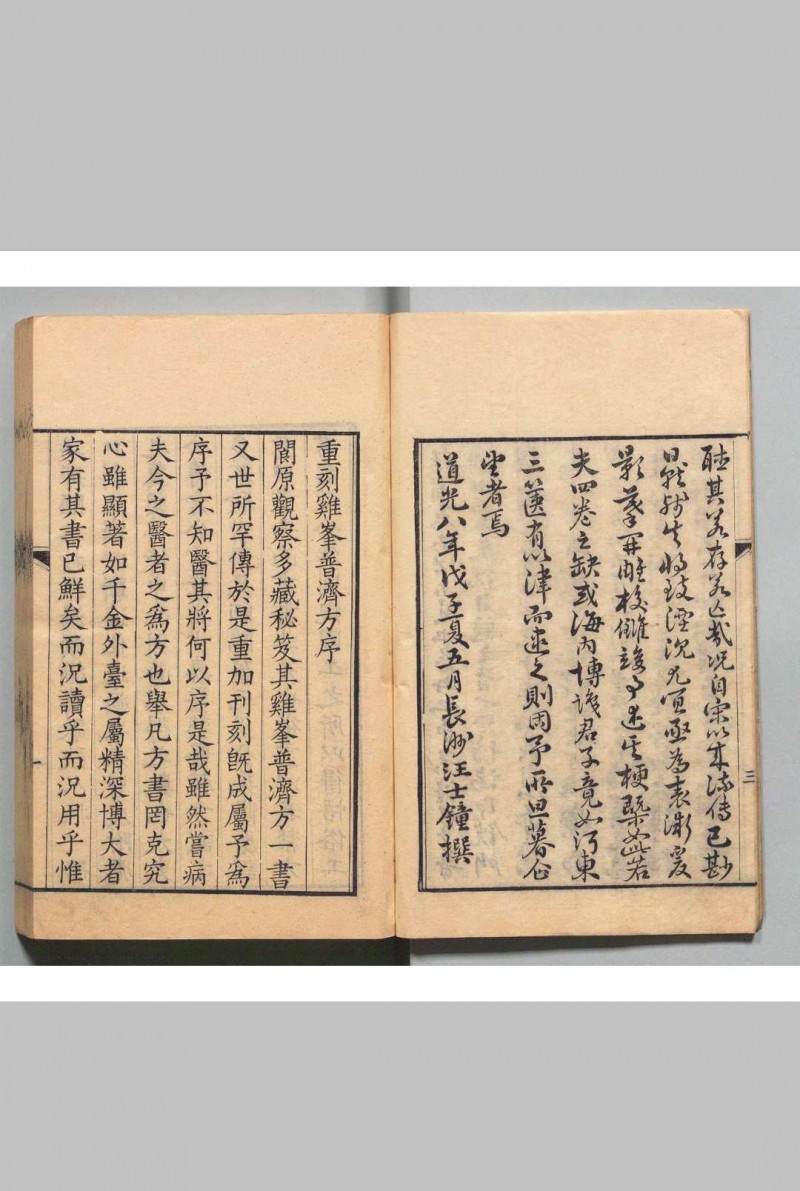 聽其若存若亡哉况自宋以來流傳已尠
殘失將致湮沉尤宜亟為表爰
影摹開雕校讎竣事述其梗槩如此若
夫四卷之缺或海内博識君子竟如河東
三篋有以津而逮之則固予所旦暮企
望者焉
道光八年戊子夏五月長洲汪士鐘撰
三
重刻雞峯普濟方序
閬原觀察多藏秘笈其雞峯普濟方一書
又世所罕傳於是重加刊刻旣成屬予爲
序予不知醫其將何以序是哉雖然嘗病
夫今之醫者之爲方也舉凡方書罔克究
心雖顯著如千金外臺之屬精深博大者
家有其書已鮮矣而況讀乎而況用乎惟
一